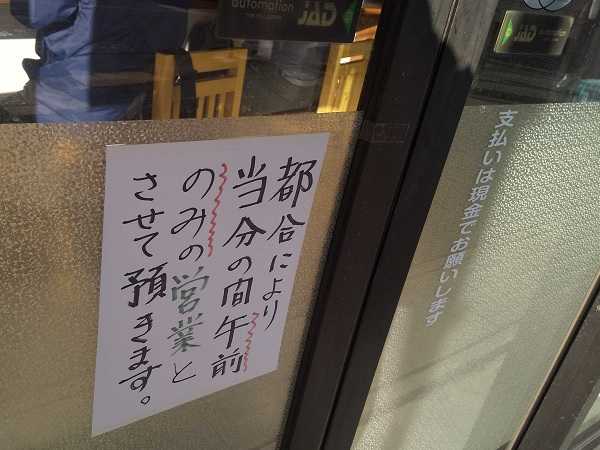 automation
JAD
JAD
都合により
当分の間午前
のみの営業と
させて預きます。
支払いは現金でお願いします